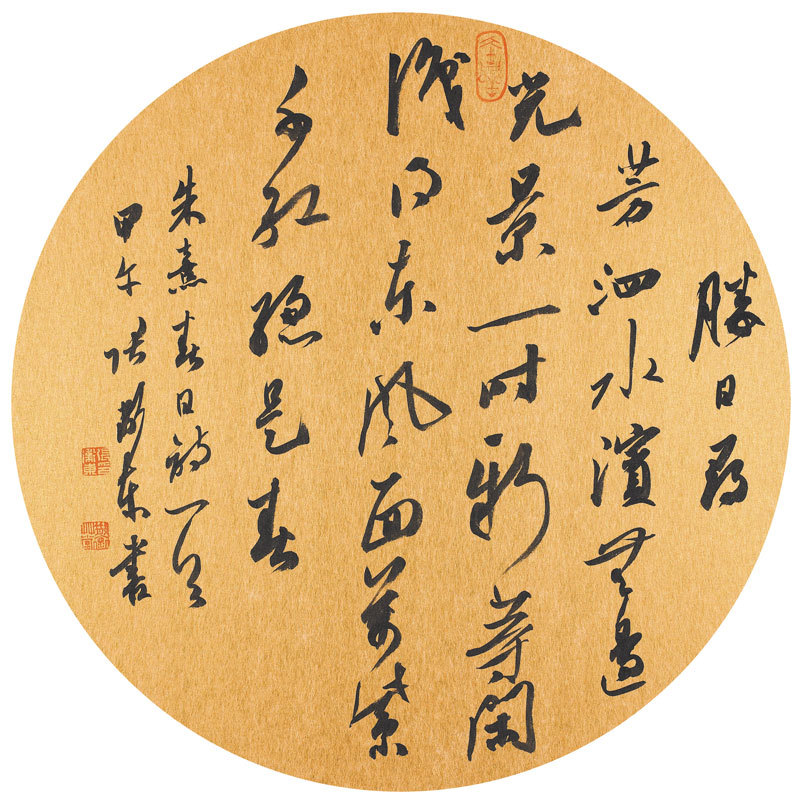 勝日尋
芳泗水濱無邊
光景一時新等閑
識得東風面萬紫
千紅總是春
朱熹春日詩一首
甲午張東書